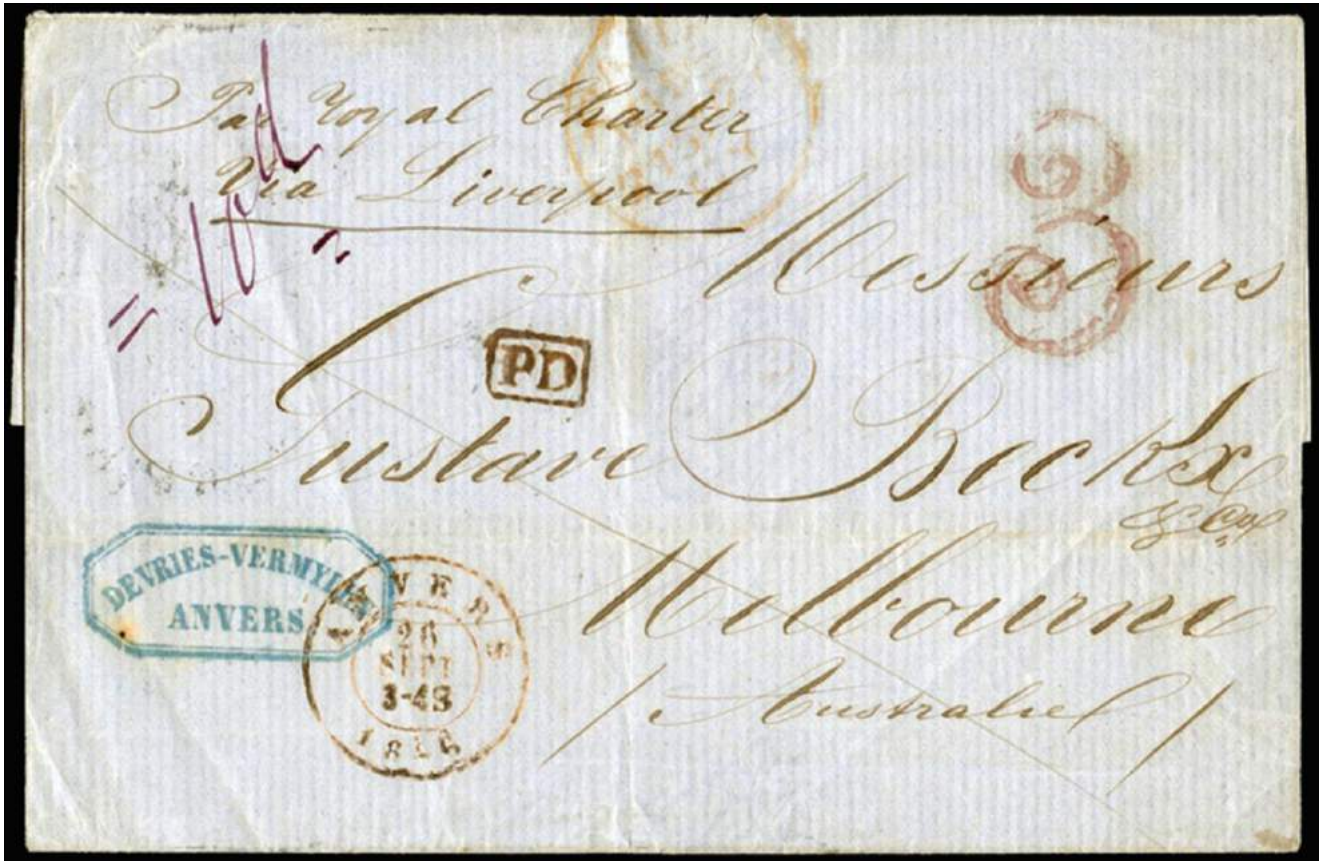 Par Royal Charter
Via Liverpool
= 10d =
3
Messieurs
PD
Gustave Beckx
& Co
Melbourne
/ Australie /
DEVRIES-VERMYLEN
ANVERS
ANVERS
26
SEPT
3-4S
1856